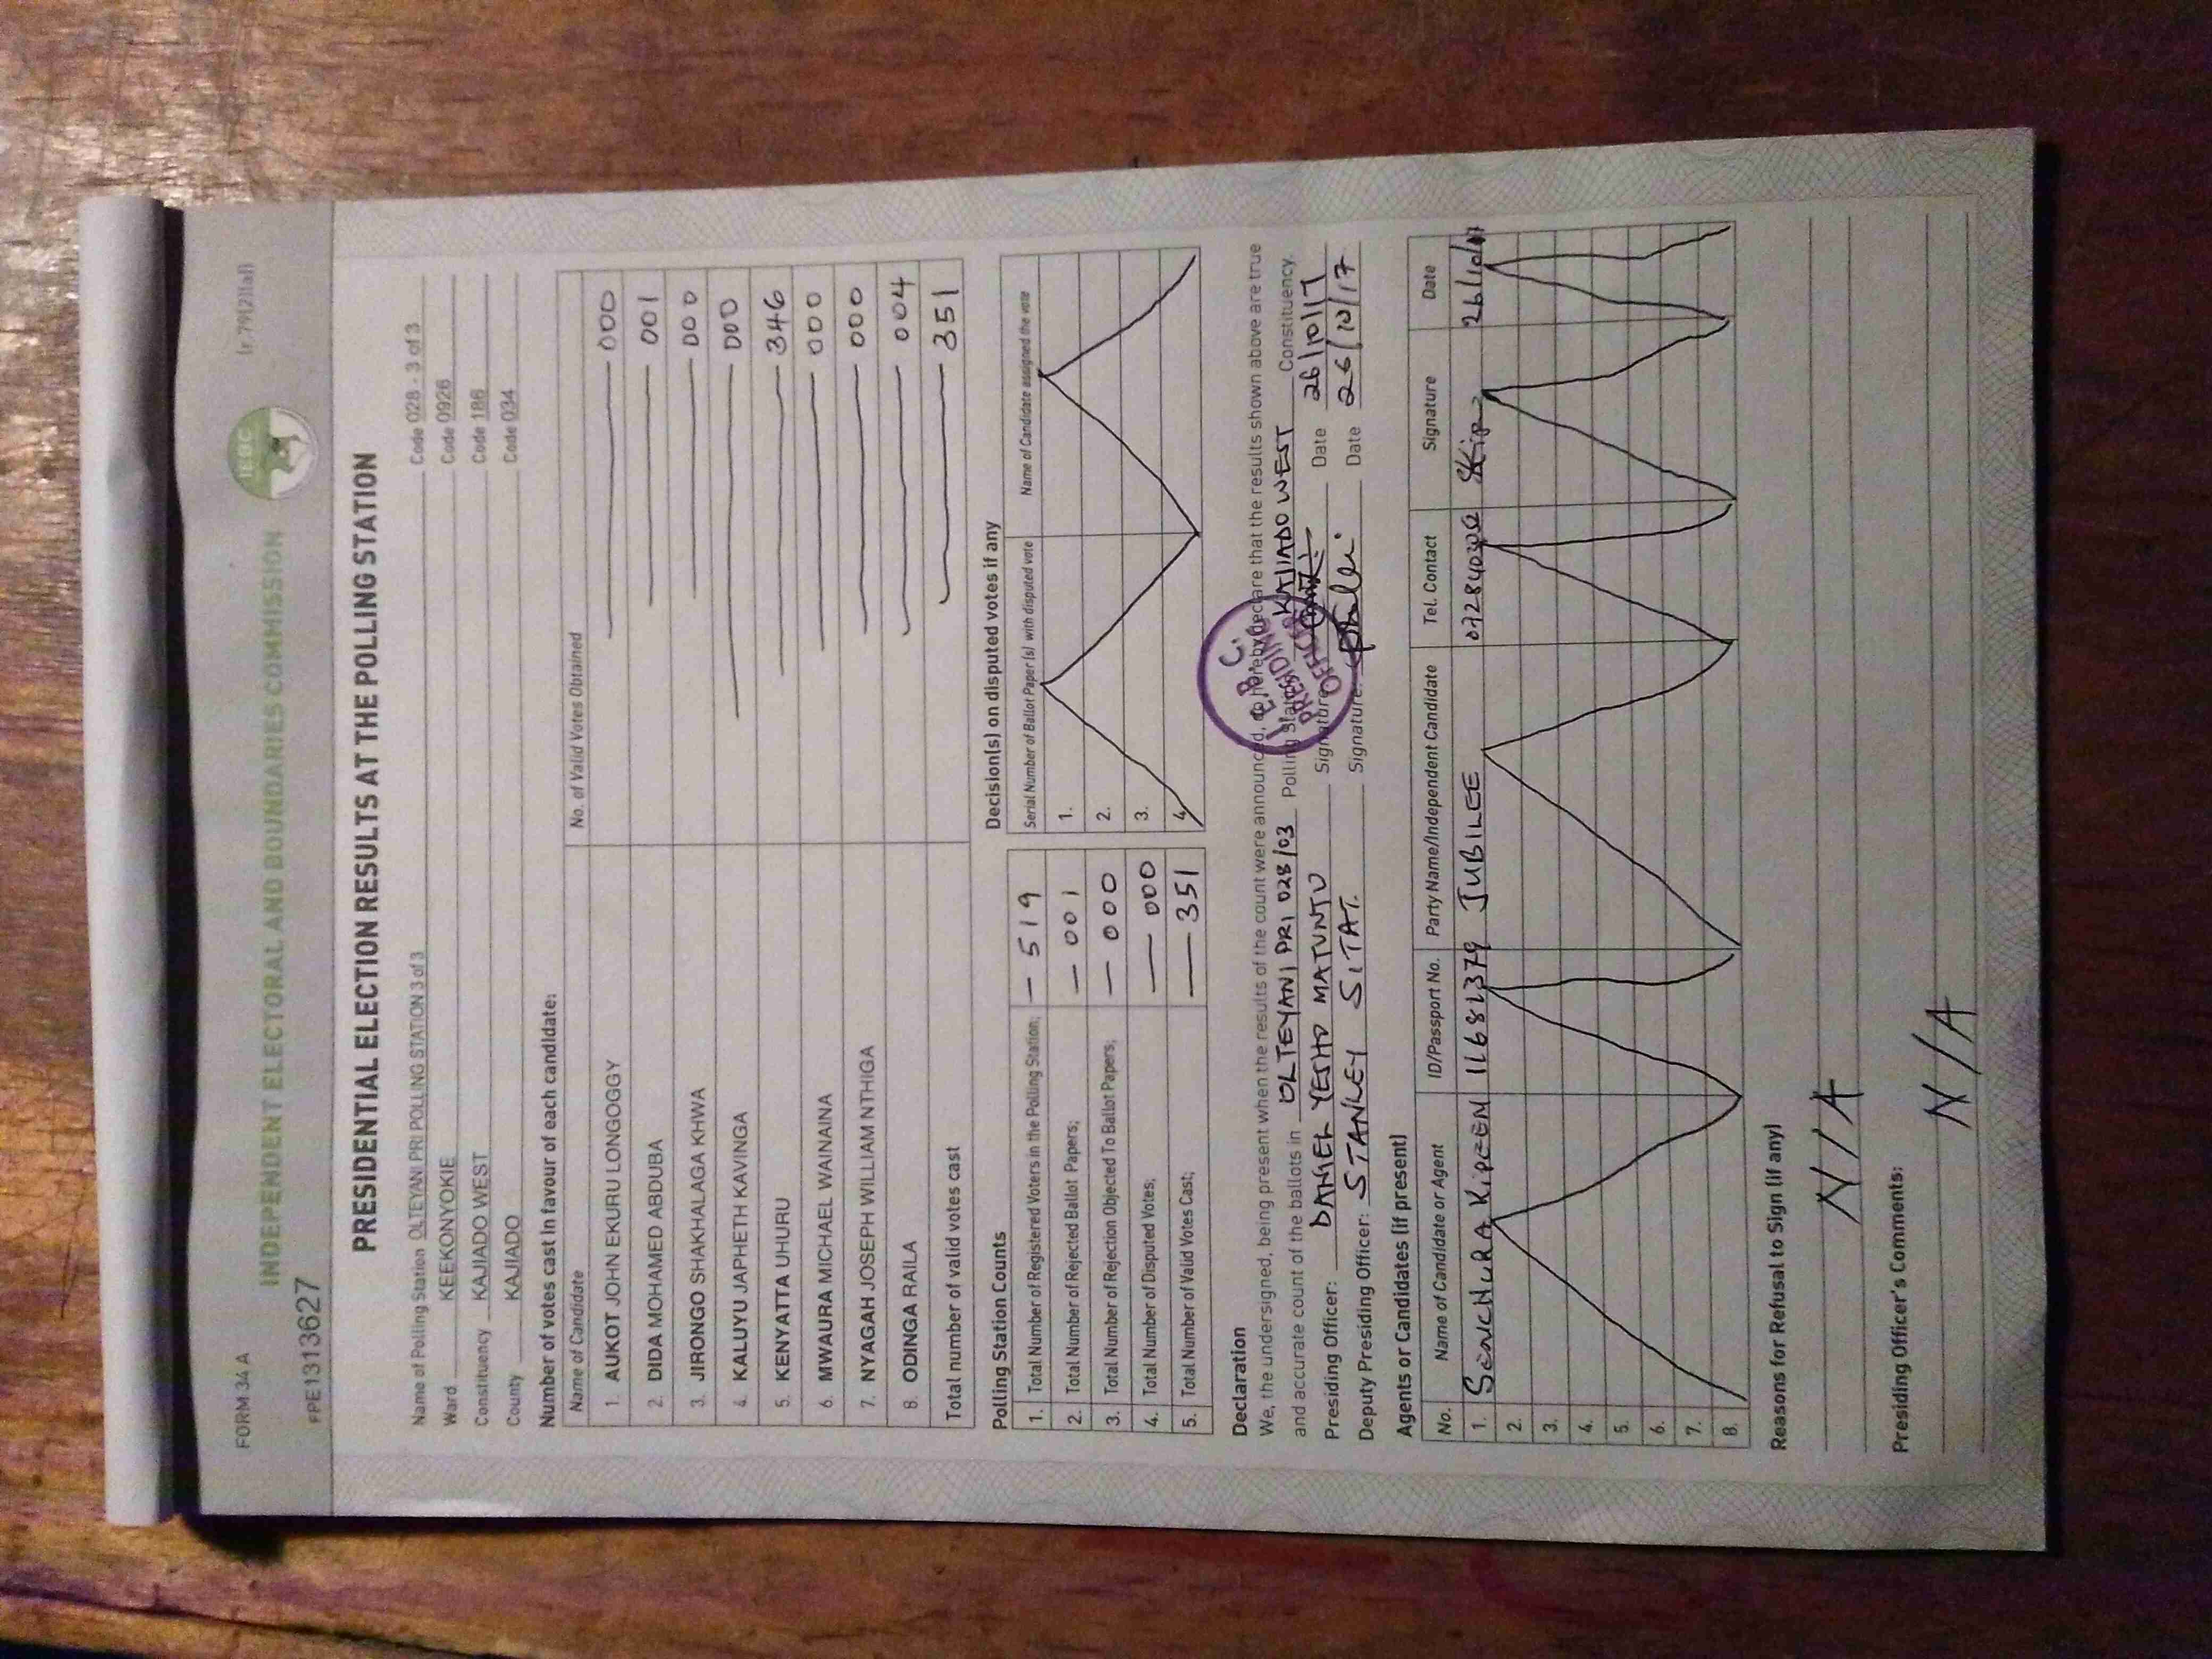 FORM 34 A (r 79(2)(a))
IEBC
INDEPENDENT ELECTORAL AND BOUNDARIES COMMISSION
FPE1313627
PRESIDENTIAL ELECTION RESULTS AT THE POLLING STATION
Name of Polling Station OLTEYANI PRI POLLING STATION 3 of 3 Code 028 - 3 of 3
Ward KEEKONYOKIE Code 0926
Constituency KAJIADO WEST Code 186
County KAJIADO Code 034
Number of votes cast in favour of each candidate:
Name of Candidate No. of Valid Votes Obtained
1. AUKOT JOHN EKURU LONGOGGY 000
2. DIDA MOHAMED ABDUBA 001
3. JIRONGO SHAKHALAGA KHWA 000
4. KALUYU JAPHETH KAVINGA 000
5. KENYATTA UHURU 346
6. MWAURA MICHAEL WAINAINA 000
7. NYAGAH JOSEPH WILLIAM NTHIGA 000
8. ODINGA RAILA 004
Total number of valid votes cast 351
Polling Station Counts
1. Total Number of Registered Voters in the Polling Station; 519
2. Total Number of Rejected Ballot Papers; 001
3. Total Number of Rejection Objected To Ballot Papers; 000
4. Total Number of Disputed Votes; 000
5. Total Number of Valid Votes Cast; 351
Decision(s) on disputed votes if any
Serial Number of Ballot Paper(s) with disputed vote Name of Candidate assigned the vote
1.
2.
3.
4.
Declaration
We, the undersigned, being present when the results of the count were announced, do hereby declare that the results shown above are true
and accurate count of the ballots in OLTEYANI PRI 028/03 Polling Station KAJIADO WEST Constituency.
Presiding Officer: DANIEL YESHO MATUNTU Signature Date 26/10/17
Deputy Presiding Officer: STANLEY SITAT. Signature: Date 26/10/17
I.E.B.C.
PRESIDING
OFFICER
Agents or Candidates (if present)
No. Name of Candidate or Agent ID/Passport No. Party Name/Independent Candidate Tel. Contact Signature Date
1. KIPEEN 11681379 JUBILEE 26/10/17
2.
3.
4.
5.
6.
7.
8.
Reasons for Refusal to Sign (if any)
N/A
Presiding Officer's Comments:
N/A